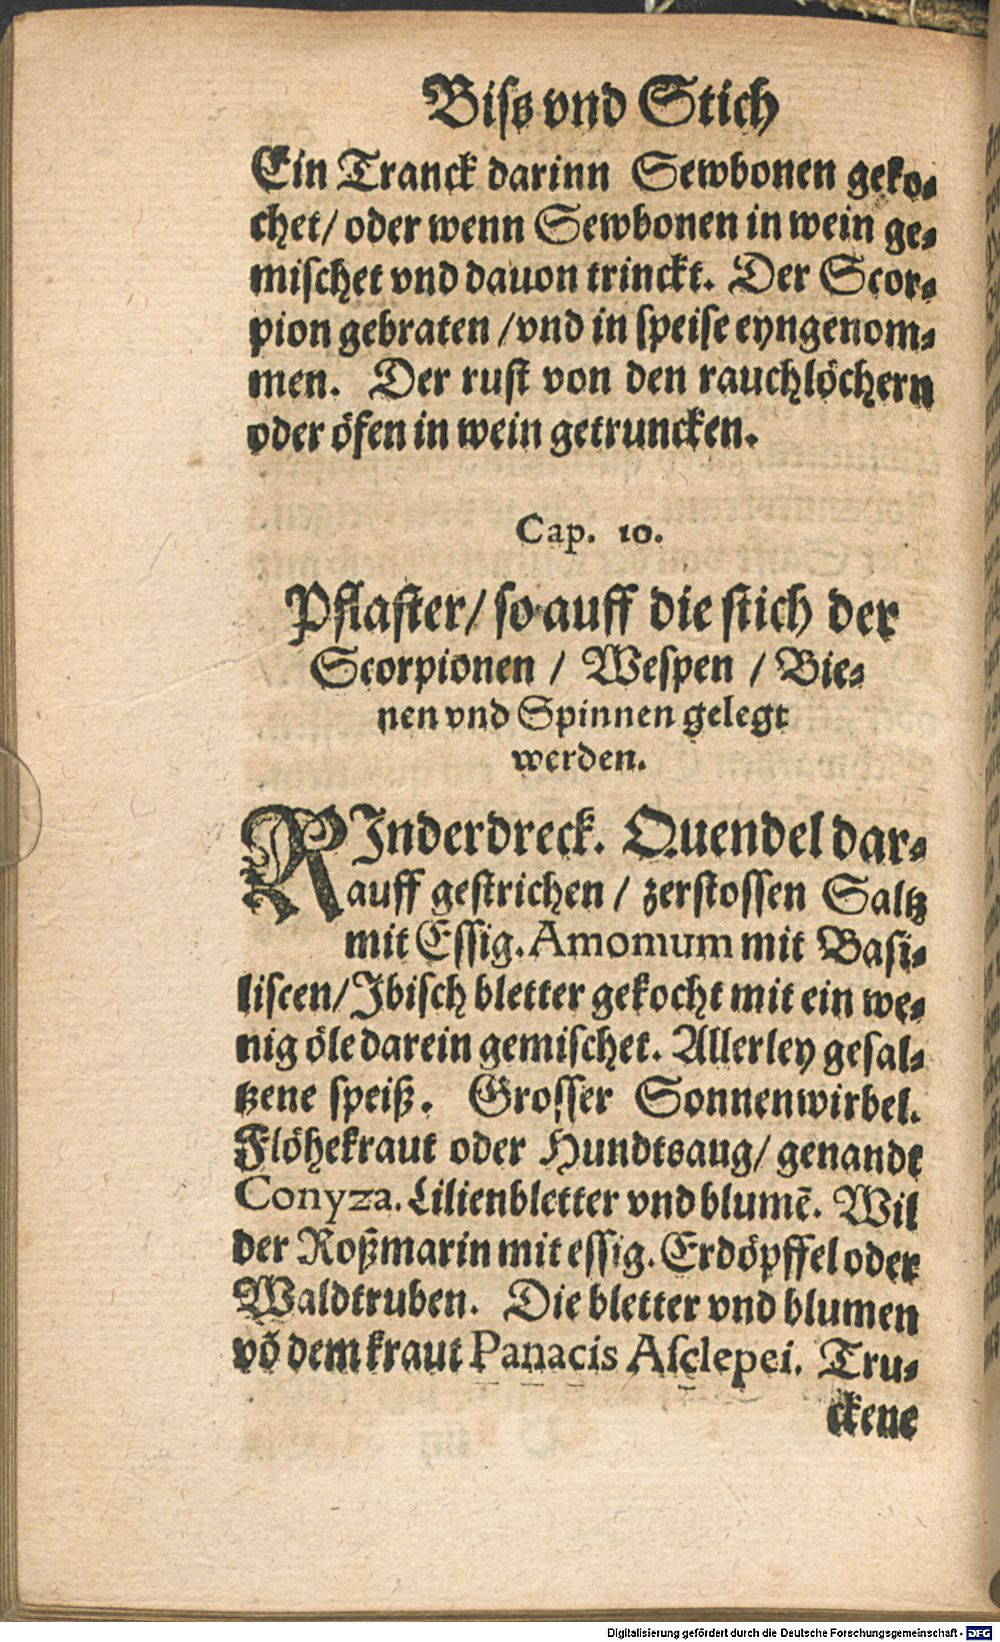 Biſs vnd Stich
Ein Tranck darinn Sewbonen geko⸗
chet/ oder wenn Sewbonen in wein ge⸗
miſchet vnd dauon trinckt. Der Scor⸗
pion gebraten /vnd in ſpeiſe eyngenom⸗
men. Der ruſt von den rauchlöchern
oder öfen in wein getruncken.
Cap. 10.
Pflaſter/ ſo auff die ſtich der
Scorpionen / Weſpen / Bie⸗
nen vnd Spinnen gelegt
werden.
RInderdreck. Quendel dar⸗
auff geſtrichen / zerſtoſſen Saltz
mit Eſſig. Amomum mit Baſi⸗
liſcen/ Jbiſch bletter gekocht mit ein we⸗
nig öle darein gemiſchet. Allerley geſal⸗
tzene ſpeiß. Groſſer Sonnenwirbel.
Flöhekraut oder Hundtsaug/ genandt
Conyza. Lilienbletter vnd blumē. Wil
der Roßmarin mit eſſig. Erdöpffel oder
Waldtruben. Die bletter vnd blumen
vō dem kraut Panacis Aſclepei. Tru⸗
ckene
Digitalisierung gefördert durch die Deutsche Forschungsgemeinschaft - DFG